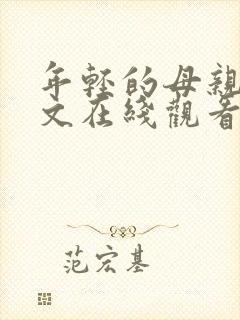 年轻的母親
文在綫觀看
范宏基